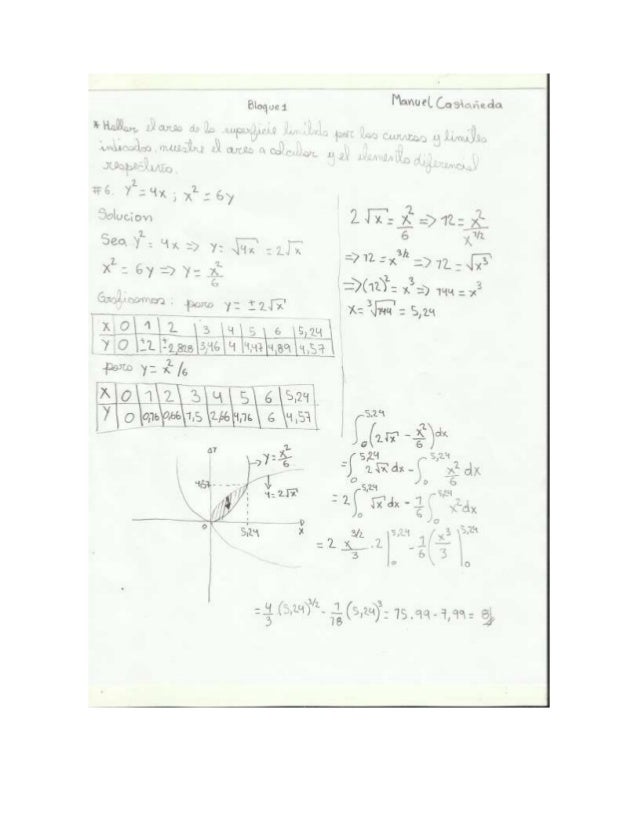 Bloque 1
Manuel Castañeda
* Hallar el area de la superficie limitada por las curvas y limites
indicados, muestre el area a calcular y el elemento diferencial
respectivo.
#6. y² = 4x ; x² = 6y
Solucion
Sea y² = 4x => y = √4x = 2√x
x² = 6y => y = x²/6
Graficamos: para y = ±2√x
X 0 1 2 3 4 5 6 5,24
Y 0 ±2 ±2,828 3,46 4 4,47 4,89 4,57
para y = x²/6
X 0 1 2 3 4 5 6 5,24
Y 0 0,16 0,66 1,5 2,66 4,16 6 4,57
y = x²/6
4,57
y = 2√x
0
5,24
X
2√x = x²/6 => 12 = x²/x^1/2
=> 12 = x^3/2 => 12 = √x³
=> (12)² = x³ => 144 = x³
x = ³√144 = 5,24
∫₀^5,24 (2√x - x²/6) dx
= ∫₀^5,24 2√x dx - ∫₀^5,24 x²/6 dx
= 2 ∫₀^5,24 √x dx - 1/6 ∫₀^5,24 x² dx
= 2 x^3/2/3 · 2 |₀^5,24 - 1/6 (x³/3 |₀^5,24
= 4/3 (5,24)^3/2 - 1/18 (5,24)³ = 15.99 - 7,99 = 8